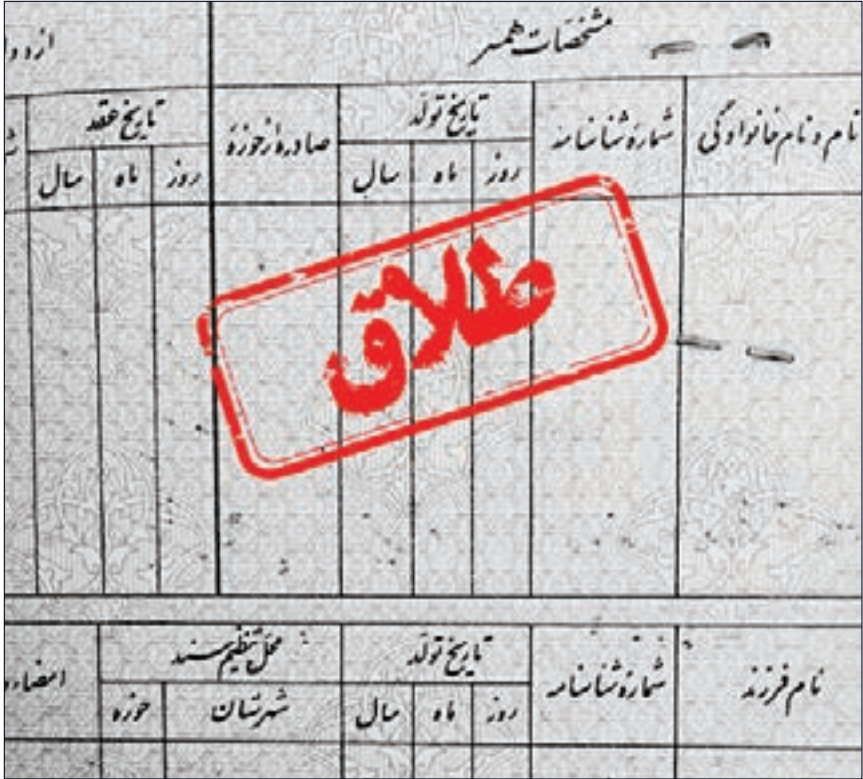 مشخصات همسر
نام و نام خانوادگی شمارهٔ شناسنامه تاریخ تولد صادره از حوزهٔ تاریخ عقد
روز ماه سال روز ماه سال
طلاق
نام فرزند شمارهٔ شناسنامه تاریخ تولد محل تنظیم سند
روز ماه سال شهرستان حوزه